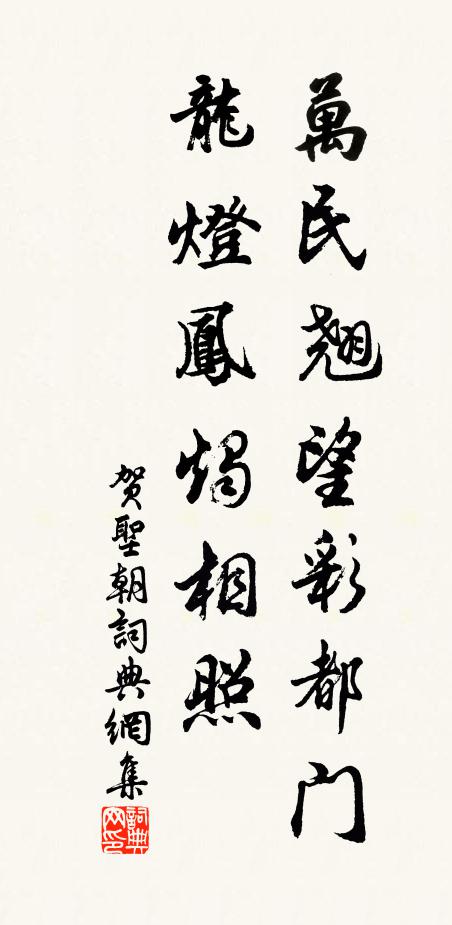 萬民翹望彩都門
龍燈鳳燭相照
贺聖朝詞典網集
詞典网印